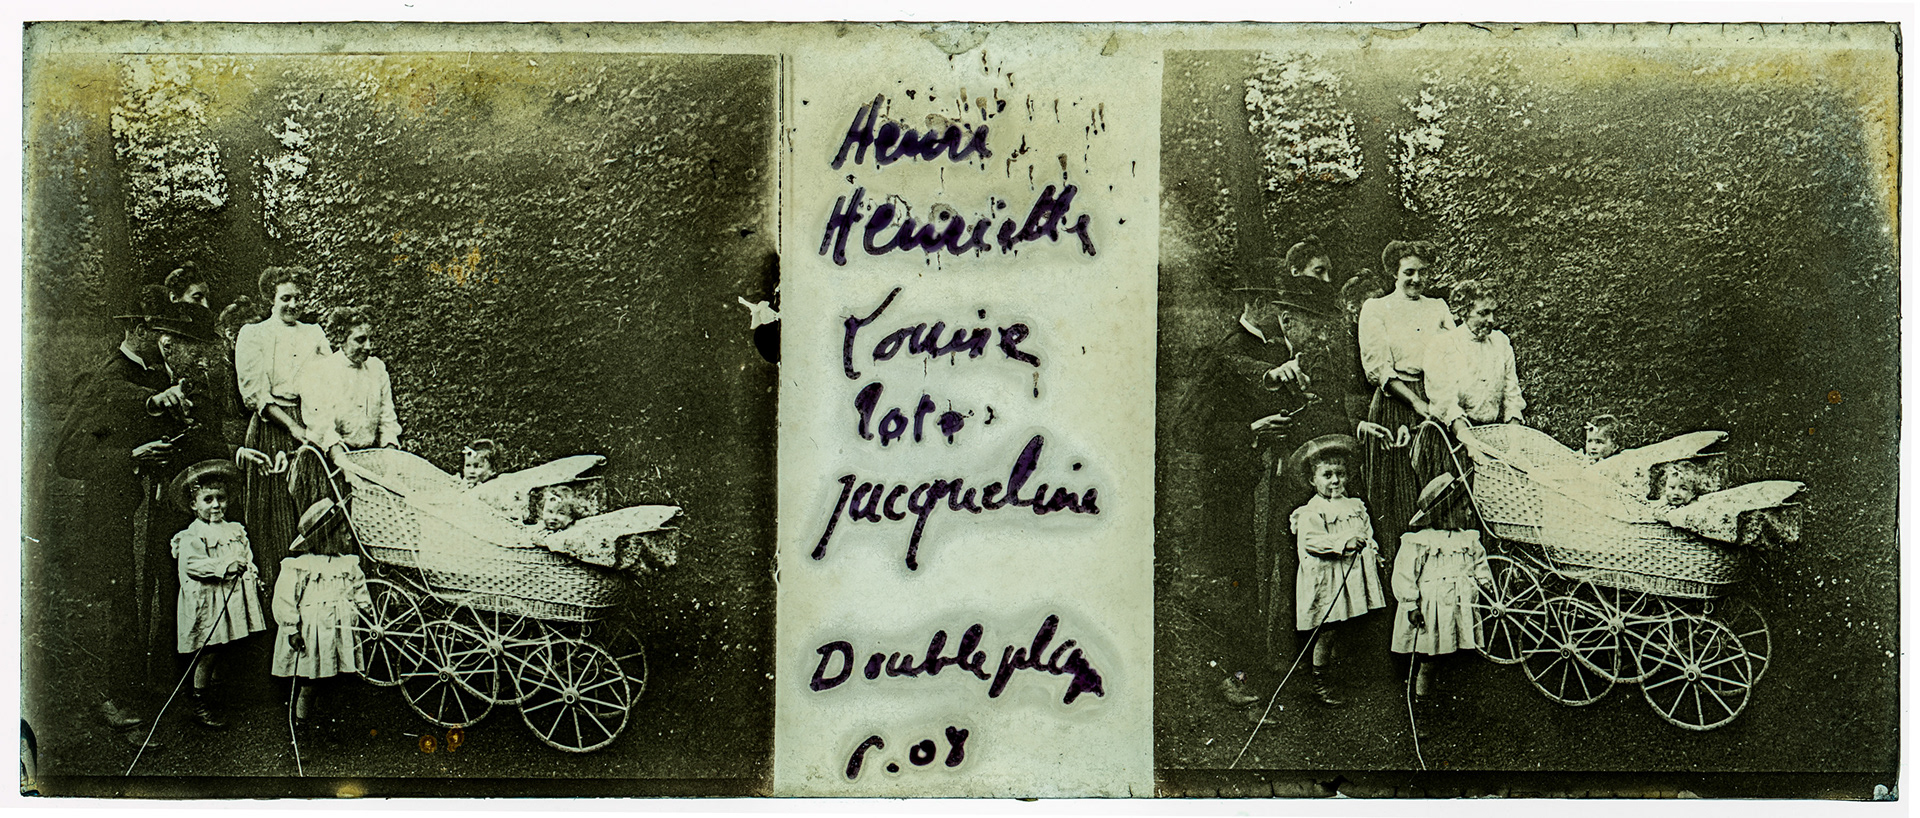 Henri
Henriette
Louise
Toto
Jacqueline
Double
08